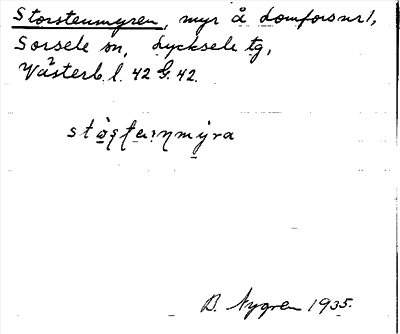 Storstenmyren, myr å Lomforsnr 1,
Sorsele sn, Lycksele tg,
Västerb. l. 42 G. 42.
D. Nygren 1935.